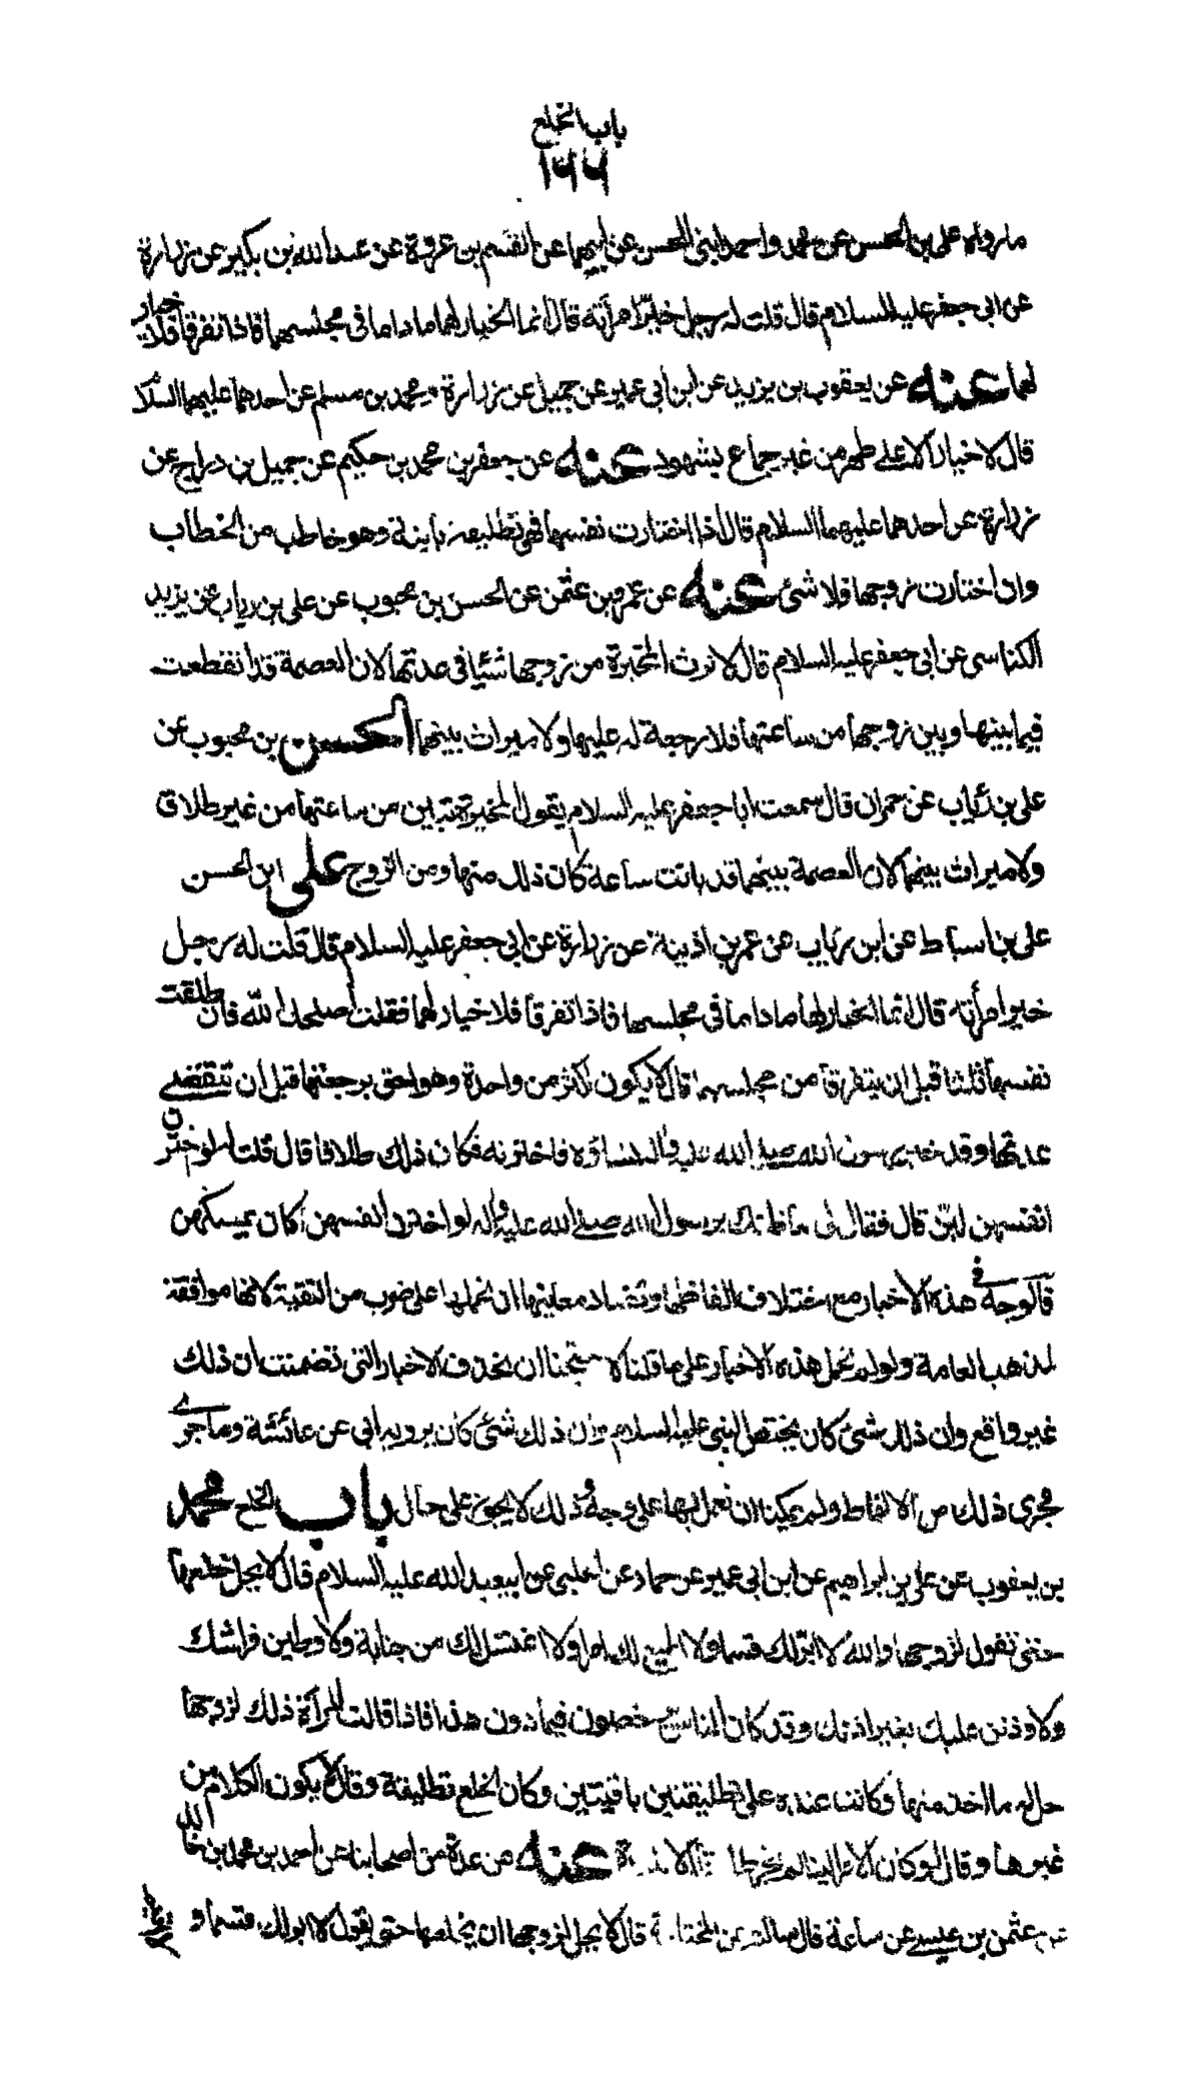 باب الخلع
١٦٦
ما رواه على بن الحسن عن محمد واحمد ابنى الحسن عن ابيهما عن القسم بن عروة عن عبد الله بن بكير عن زرارة
عن ابى جعفر عليه السلام قال قلت له رجل خير امرأته قال انما الخيار لهما ماداما فى مجلسهما فاذا تفرقا فلا خيار
لهما عنه عن يعقوب بن يزيد عن ابن ابى عمير عن جميل عن زرارة ومحمد بن مسلم عن احدهما عليهما السلا
قال لا خيار الا على طهر من غير جماع بشهود عنه عن جعفر بن محمد بن حكيم عن جميل بن دراج عن
زرارة عن احدهما عليهما السلام قال اذا اختارت نفسها فهى تطليقة باينة وهو خاطب من الخطاب
وان اختارت زوجها فلا شئ عنه عن عمرو بن عثمن عن الحسن بن محبوب عن على بن رياب عن يزيد
الكناسى عن ابى جعفر عليه السلام قال لا ترث المخيرة من زوجها شيئا فى عدتها لان العصمة قد انقطعت
فيما بينها وبين زوجها من ساعتها فلا رجعة له عليها ولا ميراث بينهما الحسن بن محبوب عن
على بن رئاب عن حمران قال سمعت ابا جعفر عليه السلام يقول المخيرة تبين من ساعتها من غير طلاق
ولا ميراث بينهما لان العصمة بينهما قد بانت ساعة كان ذلك منها ومن الزوج على ابن الحسن
على بن اسباط عن ابن رياب عن عمر بن اذينة عن زرارة عن ابى جعفر عليه السلام قال قلت له رجل
خير امرأته قال انما الخيار لهما ماداما فى مجلسهما فاذا تفرقا فلا خيار لهما فقلت اصلحك الله فان طلقت
نفسها ثلثا قبل ان يتفرقا من مجلسهما قال لا يكون اكثر من واحدة وهو احق برجعتها قبل ان تنقضى
عدتها وقد خير رسول الله صلى الله عليه واله نساؤه فاخترنه فكان ذلك طلاقا قال قلت له لو اخترن
انفسهن لبن قال فقال لى ما ظنك برسول الله صلى الله عليه واله لو اخترن انفسهن أكان يمسكهن
فالوجه فى هذه الاخبار مع اختلاف الفاظها وتضاد معانيها ان نحملها على ضرب من التقية لانها موافقة
لمذهب العامة ولو لم نحمل هذه الاخبار على ما قلناه لاحتجنا ان نحذف الاخبار التى تضمنت ان ذلك
غير واقع وان ذلك شئ كان يختص النبى عليه السلام وان ذلك شئ كان يرويه ابى عن عائشة وما جرى
مجرى ذلك من الالفاظ ولم يمكنا ان نعمل بها على وجه وذلك لا يجوز على حال باب الخلع محمد
بن يعقوب عن على بن ابراهيم عن ابن ابى عمير عن حماد عن الحلبى عن ابيعبد الله عليه السلام قال لا يحل خلعها
حتى تقول لزوجها والله لا ابر لك قسما ولا اطيع لك امرا ولا اغتسل لك من جنابة ولاوطين فراشك
ولاوذنن عليك بغير اذنك وقد كان الناس يرخصون فيما دون هذا فاذا قالت المرأة ذلك لزوجها
حل له ما اخذ منها وكانت عنده على تطليقتين باقيتين وكان الخلع تطليقة وقال لا يكون الكلام من
غيرها وقال لو كان الامر الينا لم نجز طلاقا الا للعدة عنه عن عدة من اصحابنا عن احمد بن محمد بن خالد
عن عثمن بن عيسى عن سماعة قال سالته عن المختلعة قال لا يحل لزوجها ان يخلعها حتى يقول لا ابر لك قسما و